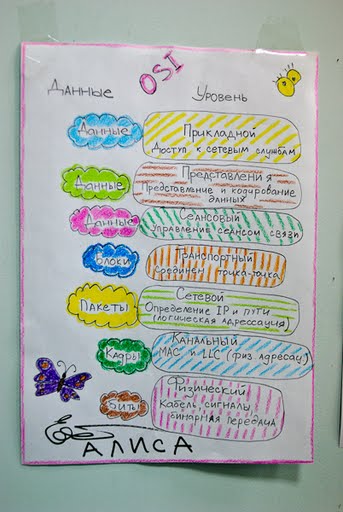 OSI
Данные Уровень
Данные
Прикладной
Доступ к сетевым службам
Данные
Представления
Представление и кодирование
данных
Данные
Сеансовый
Управление сеансом связи
Блоки
Транспортный
Пакеты
Сетевой
Определение IP и пути
(логическая адрессация)
Кадры
Канальный
MAC и LLC (физ адресац)
Биты
Физический
Кабель сигналы
бинарная передача
АЛИСА